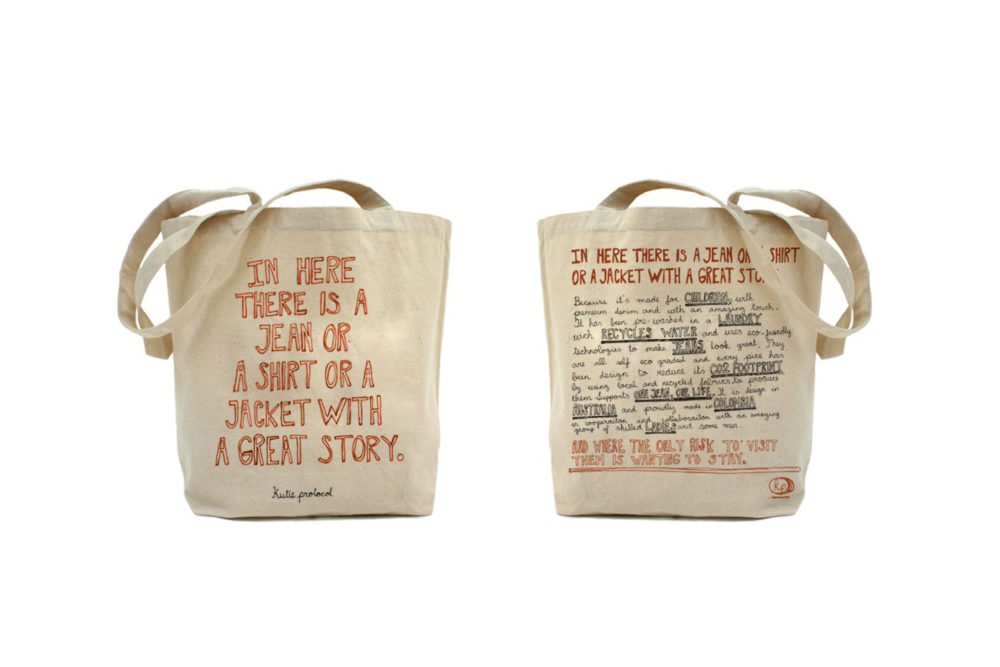 IN HERE
THERE IS A
JEAN OR
A SHIRT OR A
JACKET WITH
A GREAT STORY.
Kutie protocol
IN HERE THERE IS A JEAN OR SHIRT
OR A JACKET WITH A GREAT STO
Because it's made for CHILDREN, with
premium denim and with an amazing touch.
It has been pre-washed in a LAUNDRY
wich RECYCLES WATER and uses eco-friendly
technologies to make JEANS look great. They
are all self eco graded and every pice has
been design to reduce its CO2 FOOTPRINT
by using local and recycled fabrics to produce
them. Supports ONE JEAN, ONE LIFE. It is design in
AUSTRALIA and proudly made in COLOMBIA
in cooperaiton and collaboraiton with an amazing
group of skilled LADIES and some men.
AND WHERE THE ONLY RISK TO VISIT
THEM IS WANTING TO STAY.
Kp